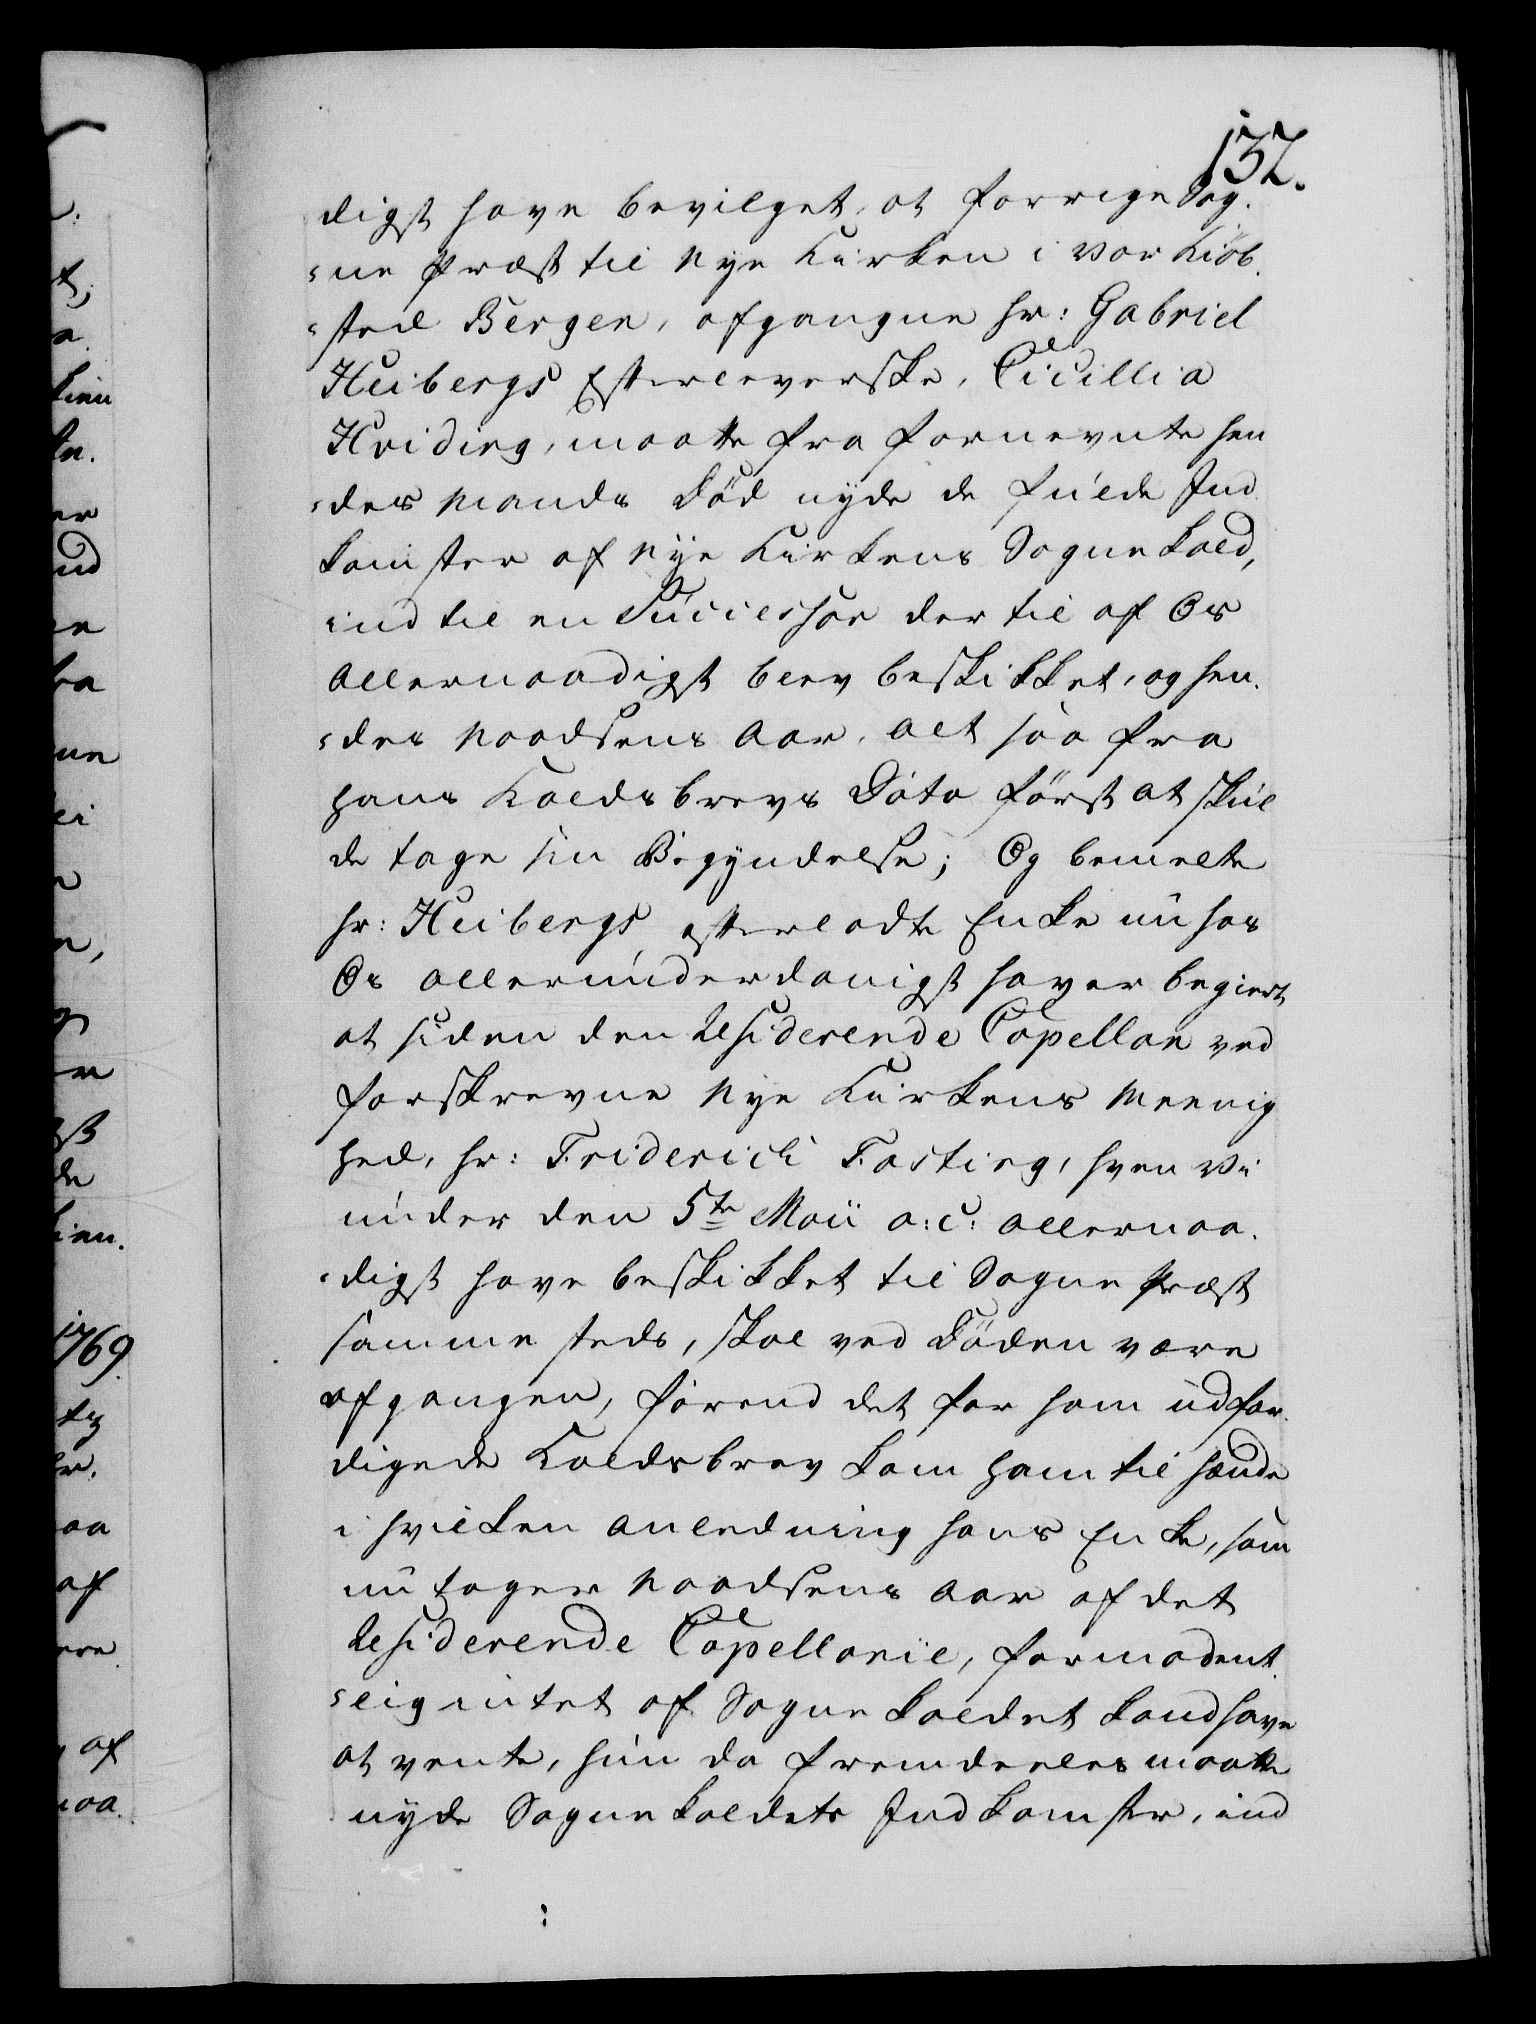 137.
digst have bevilget, at forrige Sog-
-ne Præst til Nye Kirken i Vor Kiöb-
-sted Bergen, afgangne Hr: Gabriel
Heibergs Efterleverske, Cicillia
Hviding, maatte fra fornevnte hen
-des Mands Död nyde de fulde Ind
komster af Nye Kirkens Sognekald,
indtil en Successor dertil af Os
allernaadigst blev beskikket, og hen-
-des Naadsens Aar, alt saa fra
hans Kaldsbrevs Dato först at skul
de tage sin Begyndelse; Og bemelte
Hr: Heibergs efterladte Enke nu hos
Os allerunderdanigst haver begiert,
at siden den Residerende Capellan ved
forskrevne Nye Kirkens Meenig
hed, Hr: Friderich Fasting, hven Vi
under den 5te Maii a: c: allernaa-
-digst have beskikket til Sogne Præst
sammesteds, skal ved Döden være
afgangen, förend det for ham udfær-
digede Kaldsbrev kom ham til hænde
i hvilken Anledning hans Enke, som
nu tager Naadsens Aar af det
Residerende Capellanie, formodent-
-lig intet af Sognekaldet kand have
at vente, hun da fremdeeles maatte
nyde Sognekaldets Indkomster, ind